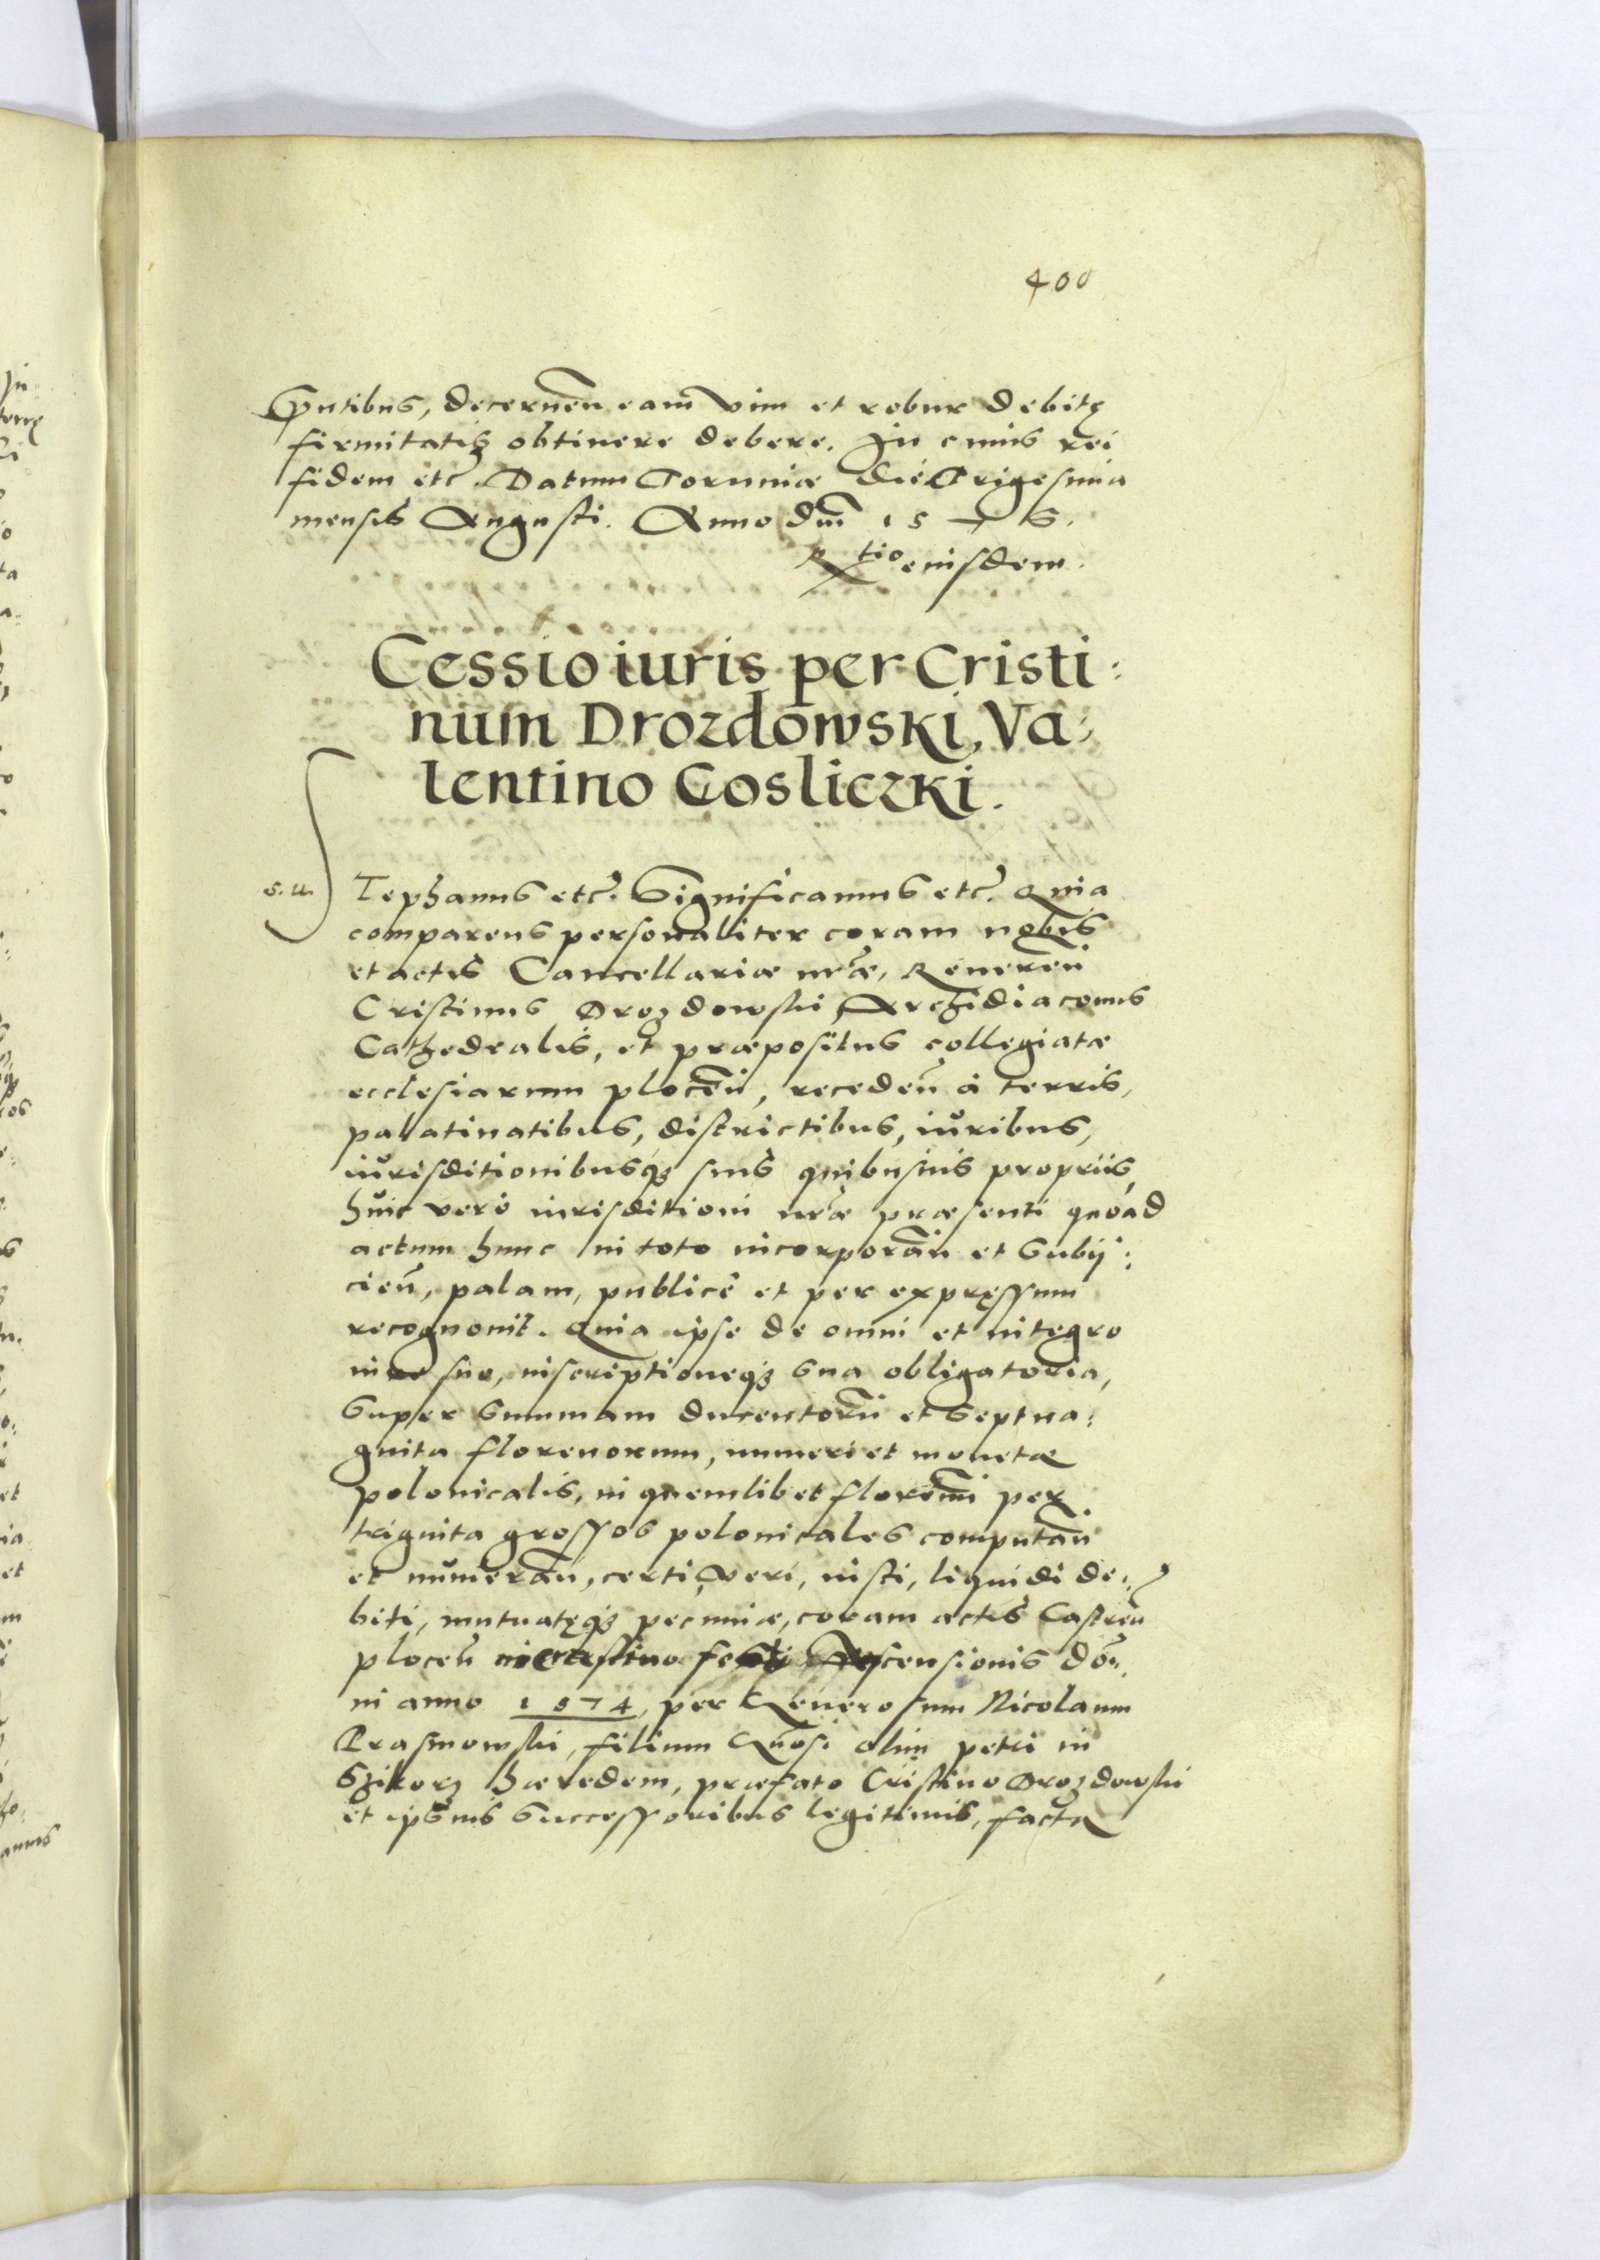 400
Pntibus, decernen̄ eam̄ vim et robur debitę
firmitatis obtinere debere. In cuius rei
fidem etc̃. Datum Toruniæ die Trigesima
mensis Augusti. Anno Dni̅ 1576.
Rtio eiusdem.
Cessio iuris per Cristi:
num Drozdowski, Va:
lentino Cosliczki.
S Tephanus etc̃. Significamus etc̃. Quia
comparens personaliter coram nobis
et actis Cancellariæ nr̃æ, Reueren̄
Cristinus Drozdowski, Archidiaconus
Cathedralis, et præpositus collegiatæ
ecclesiarum plocen̄, receden̄ à terris,
palatinatibus, districtibus, iuribus,
iurisditionibusq3 suis quibusuis propriis,
huic verò iurisditioni nr̃æ præsenti quoad
actum hunc in toto incorporan̄ et subij:
cien̄, palam, publicè et per expressum
recognouit. Quia ipse de omni et integro
iure suo, inscriptioneq3 sua obligatoria,
super summam ducentorū et septua:
guita florenorum, numeri et monetæ
polonicalis, in quemlibet floren̄ū per
triginta grossos polonicales computan̄
et numeran̄, certi, veri, iusti, liquidi de:
biti, mutuatęq3 pecuniæ, coram actis Castren̄
plocen̄ in crastino festi Ascensionis do:
ni anno 1574, per Generosum Nicolaum
Prasmowski, filium Gn̄osi olim petri in
Szikorz hæredem, præfato Cristino Drozdowski
et ipsius successoribus legitimis, facta